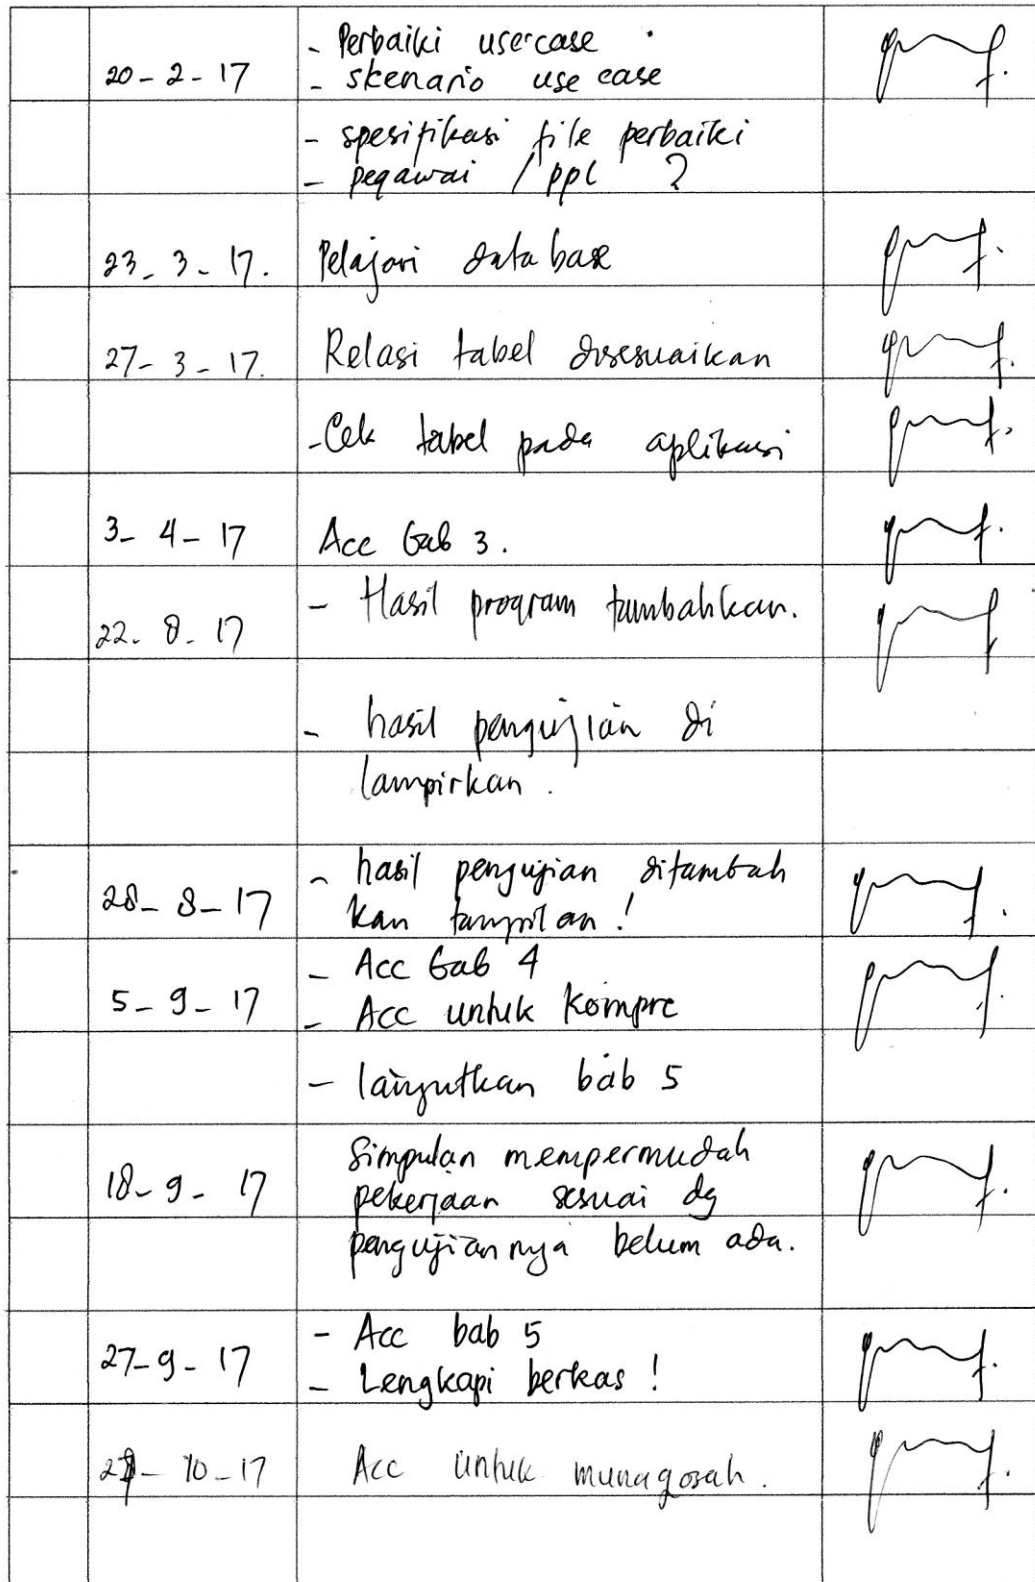 - Perbaiki usecase
20-2-17 - skenario use case
- spesifikasi file perbaiki
- pegawai / ppl ?
23-3-17. Pelajari database
27-3-17. Relasi tabel disesuaikan
- Cek tabel pada aplikasi
3-4-17 Acc bab 3.
- Hasil program tambahkan.
22-8-17
- hasil pengujian di
lampirkan.
- hasil pengujian ditambah
28-8-17 kan tampilan!
- Acc bab 4
5-9-17 - Acc untuk kompre
- lanjutkan bab 5
Simpulan mempermudah
18-9-17 pekerjaan sesuai dg
pengujiannya belum ada.
- Acc bab 5
27-9-17 - Lengkapi berkas!
-10-17 Acc untuk munaqosah.